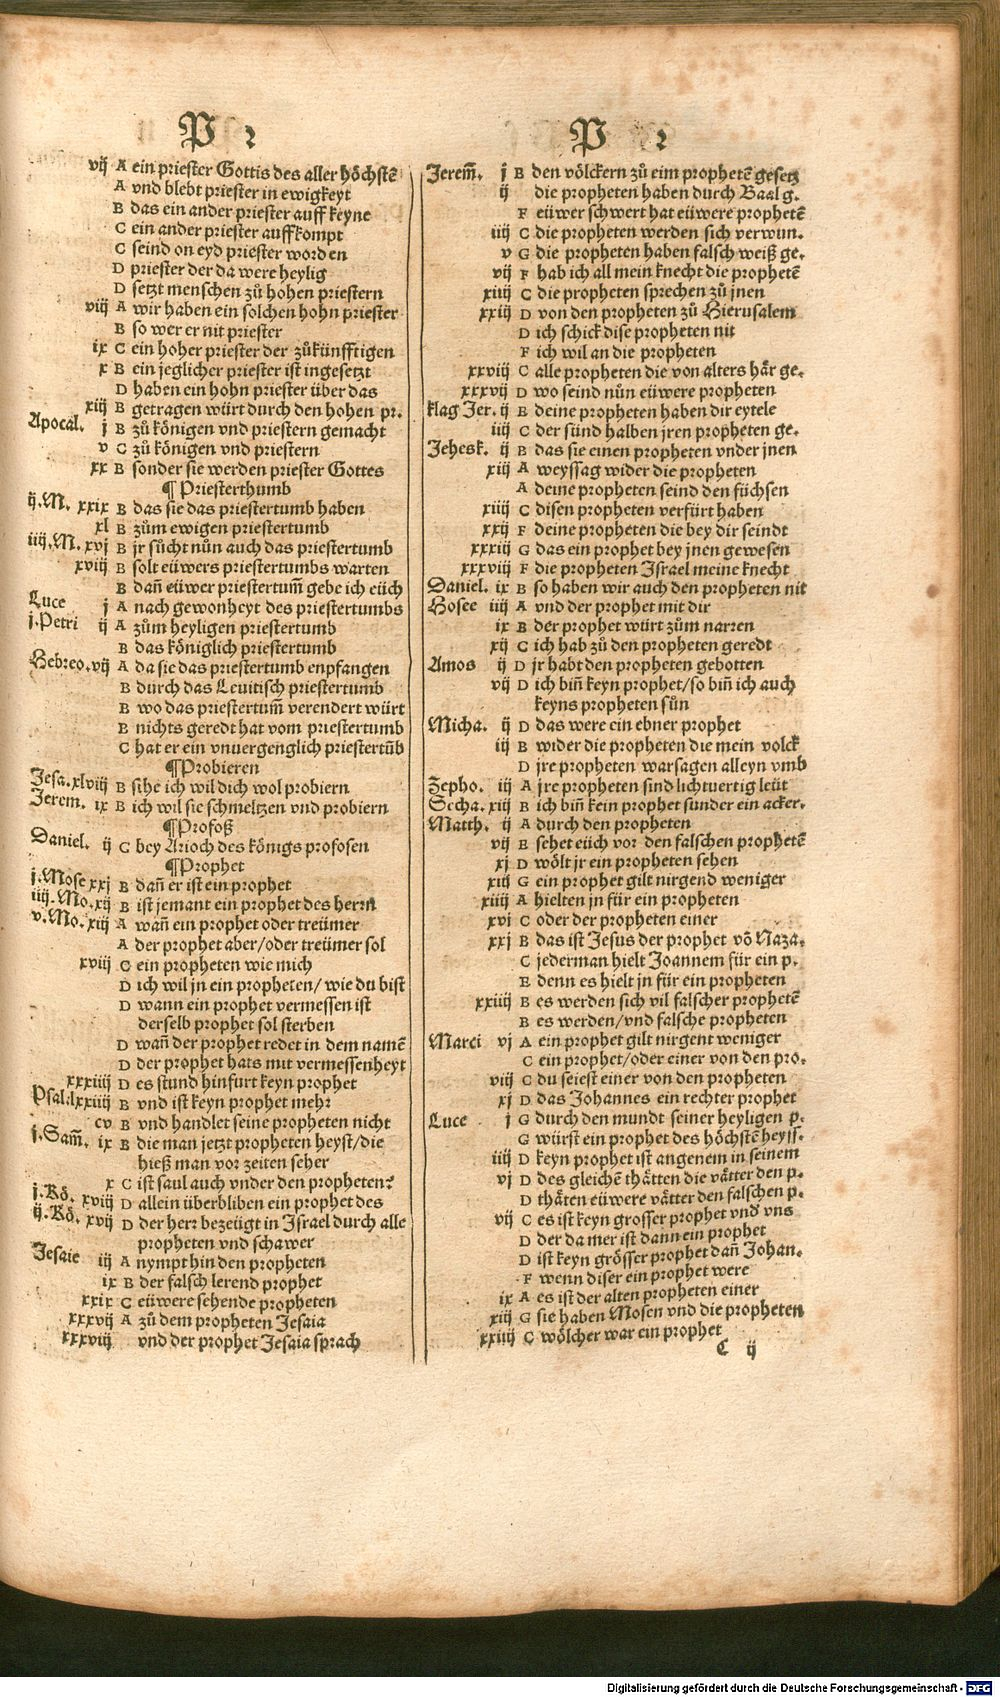 P r
vij A ein priester Gottis des aller höchstē
A vnd blebt priester in ewigkeyt
B das ein ander priester auff keyne
C ein ander priester auffkompt
C seind on eyd priester worden
D priester der da were heylig
D setzt menschen zů hohen priestern
viij A wir haben ein solchen hohn priester
B so wer er nit priester
ix C ein hoher priester der zůkünfftigen
x B ein jeglicher priester ist ingesetzt
D haben ein hohn priester über das
xiij B getragen würt durch den hohen pr.
Apocal. j B zů königen vnd priestern gemacht
v C zů königen vnd priestern
xx B sonder sie werden priester Gottes
¶ Priesterthumb
ij.M. xxix B das sie das priestertumb haben
xl B zům ewigen priestertumb
iiij.M. xvj B jr sůcht nůn auch das priestertumb
xviij B solt eüwers priestertumbs warten
B dañ eüwer priestertum̃ gebe ich eüch
Luce j A nach gewonheyt des priestertumbs
j.Petri ij A zům heyligen priestertumb
B das königlich priestertumb
Hebreo. vij A da sie das priestertumb enpfangen
B durch das Leuitisch priestertumb
B wo das priestertum̃ verendert würt
B nichts geredt hat vom priestertumb
C hat er ein vnuergenglich priestertūb
¶Probieren
Jesa. xlviij B sihe ich wil dich wol probiern
Jerem. ix B ich wil sie schmeltzen vnd probiern
¶Profoß
Daniel. ij C bey Arioch des königs profosen
¶Prophet
j.Mose xxj B dañ er ist ein prophet
iiij.Mo. xij B ist jemant ein prophet des herrn
v.Mo. xiij A wañ ein prophet oder treümer
A der prophet aber/oder treümer sol
xviij C ein propheten wie mich
D ich wil jn ein propheten/ wie du bist
D wann ein prophet vermessen ist
derselb prophet sol sterben
D wañ der prophet redet in dem namē
D der prophet hats mit vermessenheyt
xxxiiij D es stund hinfurt keyn prophet
Psal. lxxiiij B vnd ist keyn prophet mehr
cv B vnd handlet seine propheten nicht
j.Sam̃. ix B die man jetzt propheten heyst/die
hieß man vor zeiten seher
x C ist saul auch vnder den propheten?
j.Kö. xviij D allein überbliben ein prophet des
ij.Kö. xvij D der herr bezeügt in Israel durch alle
propheten vnd schawer
Jesaie iij A nympt hin den propheten
ix B der falsch lerend prophet
xxix C eüwere sehende propheten
xxxvij A zů dem propheten Jesaia
xxxviij vnd der prophet Jesaia sprach
P r
Jerem̃. j B den völckern zů eim prophetē gesetz
ij die propheten haben durch Baal g.
F eüwer schwert hat eüwere prophetē
iiij C die propheten werden sich verwun.
v G die propheten haben falsch weiß ge.
vij F hab ich all mein knecht die prophetē
xiiij C die propheten sprechen zů jnen
xxiij D von den propheten zů Hierusalem
D ich schick dise propheten nit
F ich wil an die propheten
xxviij C alle propheten die von alters här ge.
xxxvij D wo seind nůn eüwere propheten
klag Jer. ij E deine propheten haben dir eytele
iiij C der sünd halben jren propheten ge.
Jehesk. ij B das sie einen propheten vnder jnen
xiij A weyssag wider die propheten
A deine propheten seind den füchsen
xiiij C disen propheten verfürt haben
xxij F deine propheten die bey dir seindt
xxxiij G das ein prophet bey jnen gewesen
xxxviij F die propheten Israel meine knecht
Daniel. ix B so haben wir auch den propheten nit
Hosee iiij A vnd der prophet mit dir
ix B der prophet würt zům narren
xij C ich hab zů den propheten geredt
Amos ij D jr habt den propheten gebotten
vij D ich biñ keyn prophet/so biñ ich auch
keyns propheten sůn
Micha. ij D das were ein ebner prophet
iij B wider die propheten die mein volck
D jre propheten warsagen alleyn vmb
Zepho. iij A jre propheten sind lichtuertig leüt
Secha. xiij B ich biñ kein prophet sunder ein acker.
Matth. ij A durch den propheten
vij E sehet eüch vor den falschen prophetē
xj D wölt jr ein propheten sehen
xiij G ein prophet gilt nirgend weniger
xiiij A hielten jn für ein propheten
xvj C oder der propheten einer
xxj B das ist Jesus der prophet vō Naza.
C jederman hielt Joannem für ein p.
E denn es hielt jn für ein propheten
xxiiij B es werden sich vil falscher prophetē
B es werden/vnd falsche propheten
Marci vj A ein prophet gilt nirgent weniger
C ein prophet/oder einer von den pro.
viij C du seiest einer von den propheten
xj D das Johannes ein rechter prophet
Luce j G durch den mundt seiner heyligen p.
G würst ein prophet des höchstē heyss.
iiij D keyn prophet ist angenem in seinem
vj D des gleichē thätten die vätter den p.
D thäten eüwere vätter den falschen p.
vij C es ist keyn grosser prophet vnd vns
D der da mer ist dann ein prophet
D ist keyn grösser prophet dañ Johan.
F wenn diser ein prophet were
ix A es ist der alten propheten einer
xiij G sie haben Mosen vnd die propheten
xxiiij C wölcher war ein prophet
C ij
Digitalisierung gefördert durch die Deutsche Forschungsgemeinschaft - DFG